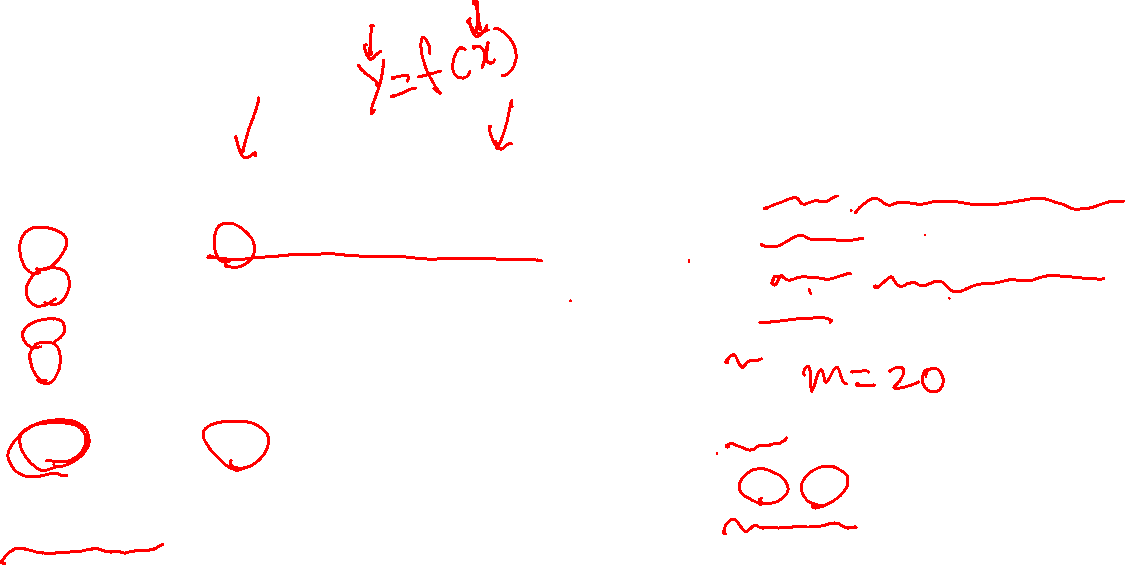 y=f(x)
m=20